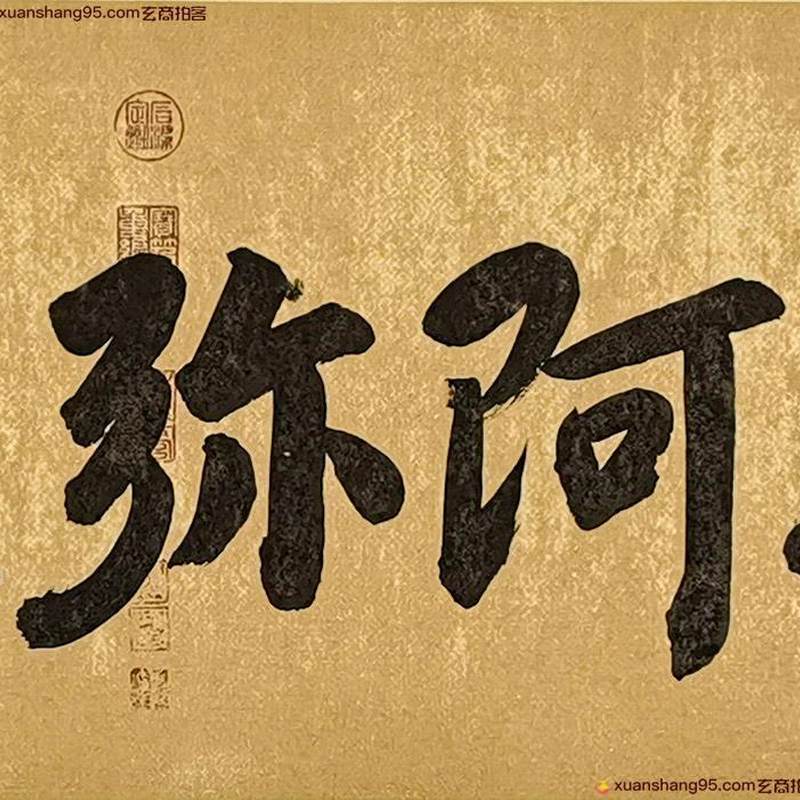 xuanshang95.com玄商拍客
阿弥
xuanshang95.com玄商拍